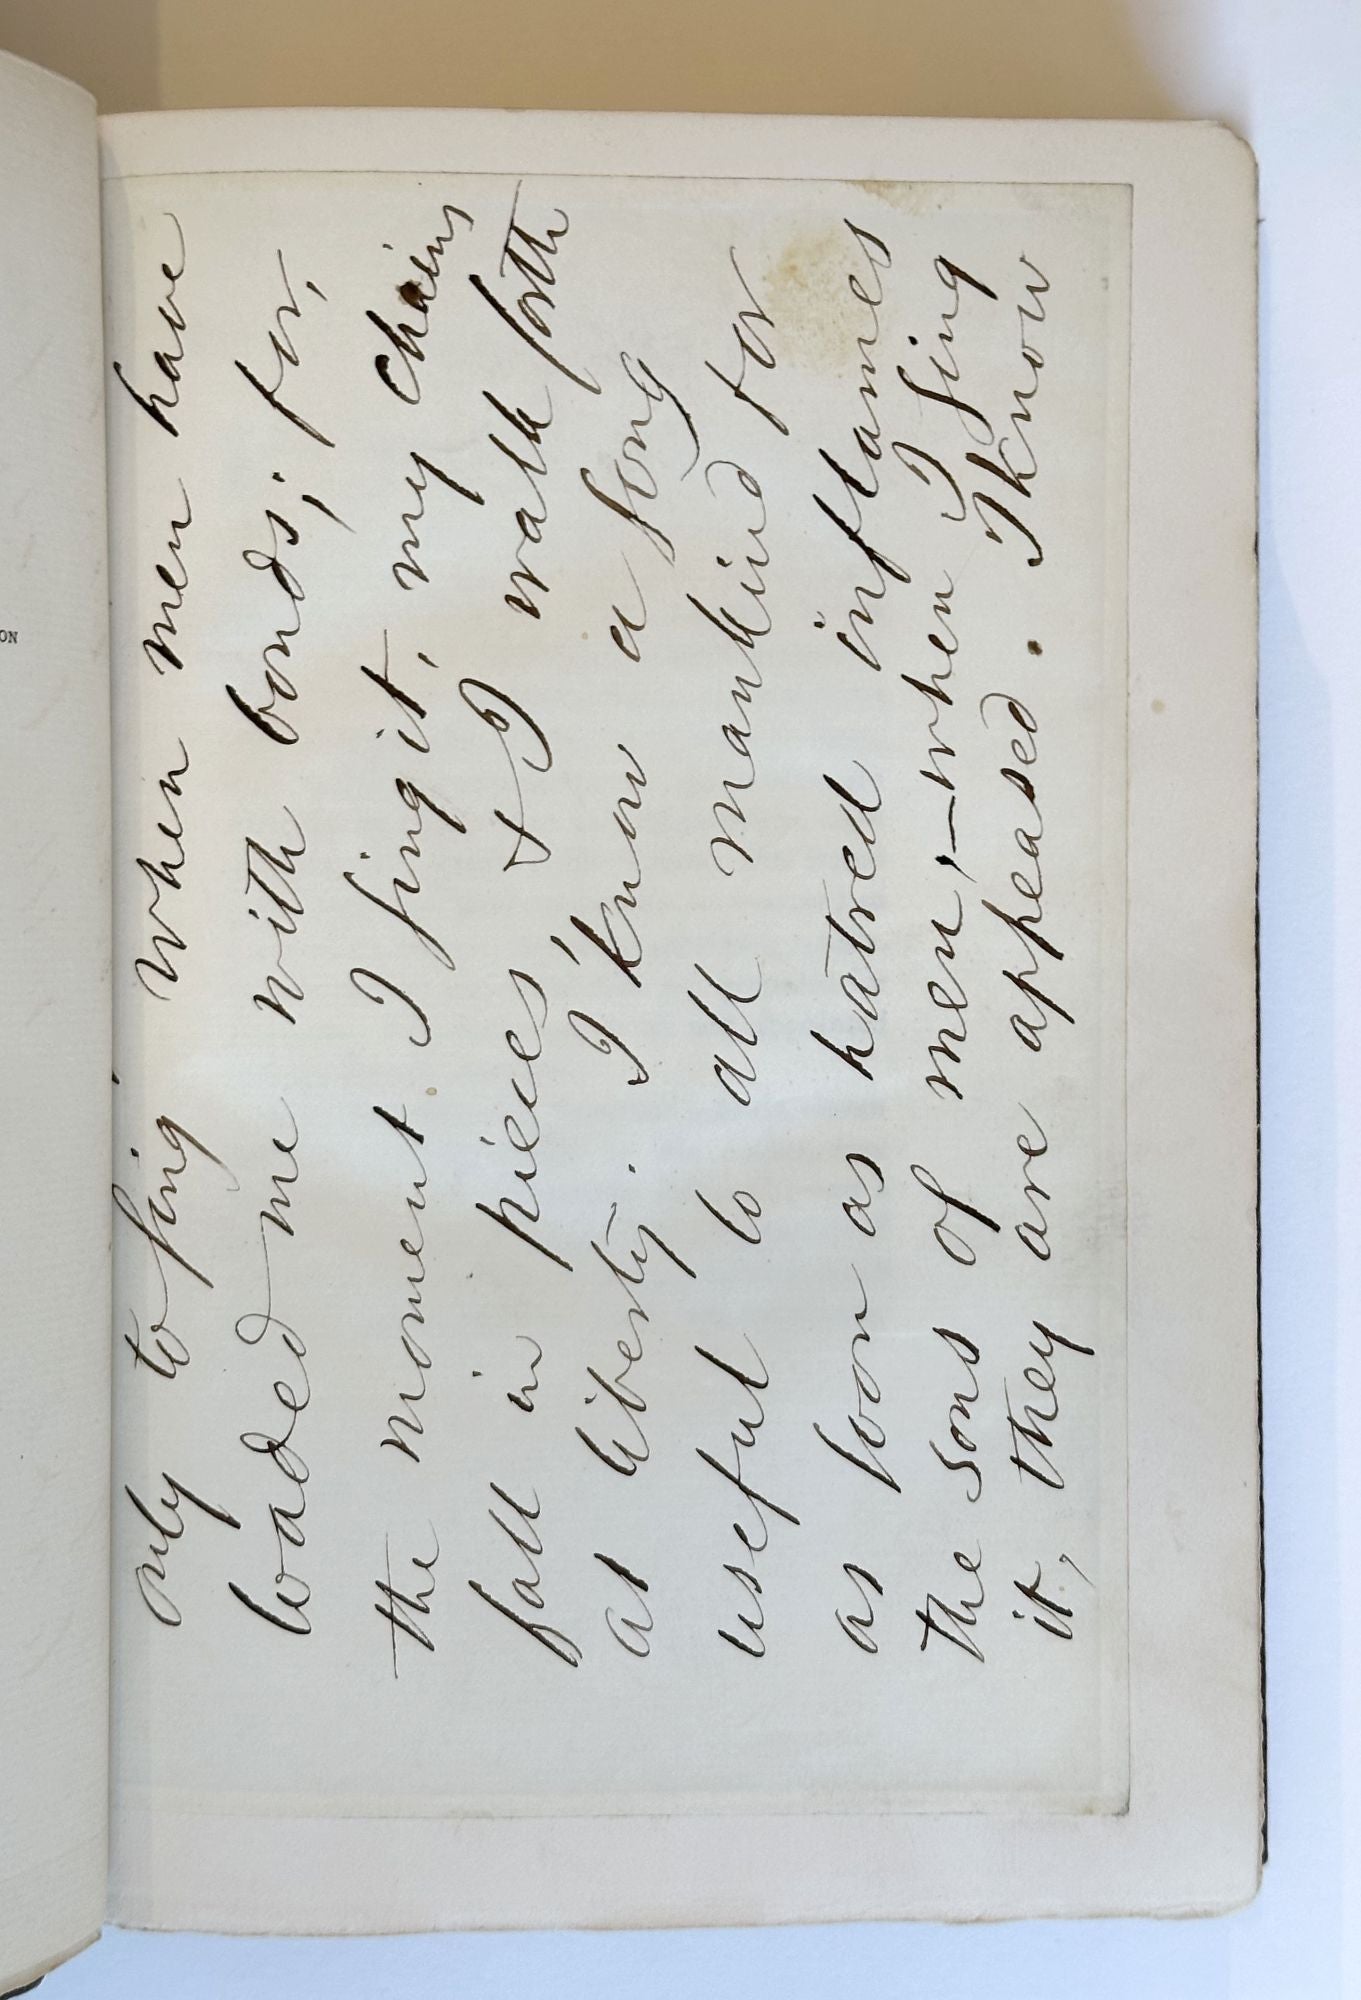 ON
only to sing, when men have
loaded me with bonds; for,
the moment I sing it, my chains
fall in pieces, & I walk forth
at liberty. I know a song
useful to all mankind for
as soon as hatred inflames
the sons of men,—when I sing
it, they are appeased. I know